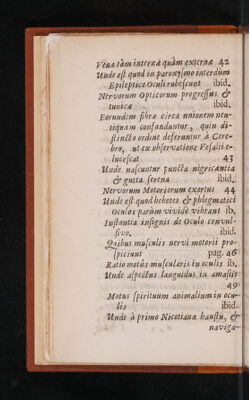 Venæ tàm internæ quàm externæ 42
Unde est quod in paroxysmo interdum
Epileptico Oculi rubescunt ibid.
Nervorum Opticorum progressus &
tunicæ ibid.
Eorundem fibræ circa unionem neu-
tiquam confunduntur, quin di-
stincto ordine deferuntur à Cere-
bro, ut ex observatione Vesalii e-
lucescat 43
Unde nascuntur puncta nigricantia
& gutta serena ibid.
Nervorum Motoriorum exortus 44
Unde est quod hebetes & phlegmatici
Oculos parùm vividè vibrant ib.
Instantia insignis de Oculo convul-
sivo. ibid.
Quibus musculis nervi motorii pro-
spiciunt pag. 46
Ratio motûs muscularis in oculis ib.
Unde aspectus languidus in amasiis
49
Motus spirituum animalium in ocu-
lis ibid.
Unde à primo Nicotianæ haustu, &
naviga-